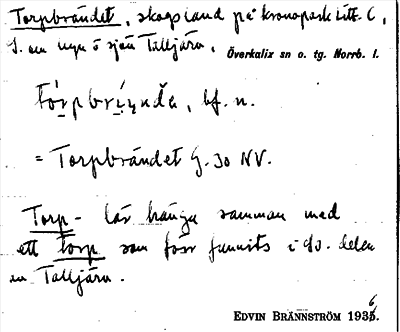 Torpbrändet, skogsland på kronopark Litt. C,
S. om sjön Talljärv. Överkalix sn o. tg. Norrb. l.
bf. n.
= Torpbrändet G. 30 NV.
Torp- lär hänga samman med
ett torp som förr funnits i do. delen
av Talljärv.
EDVIN BRÄNNSTRÖM 1936.